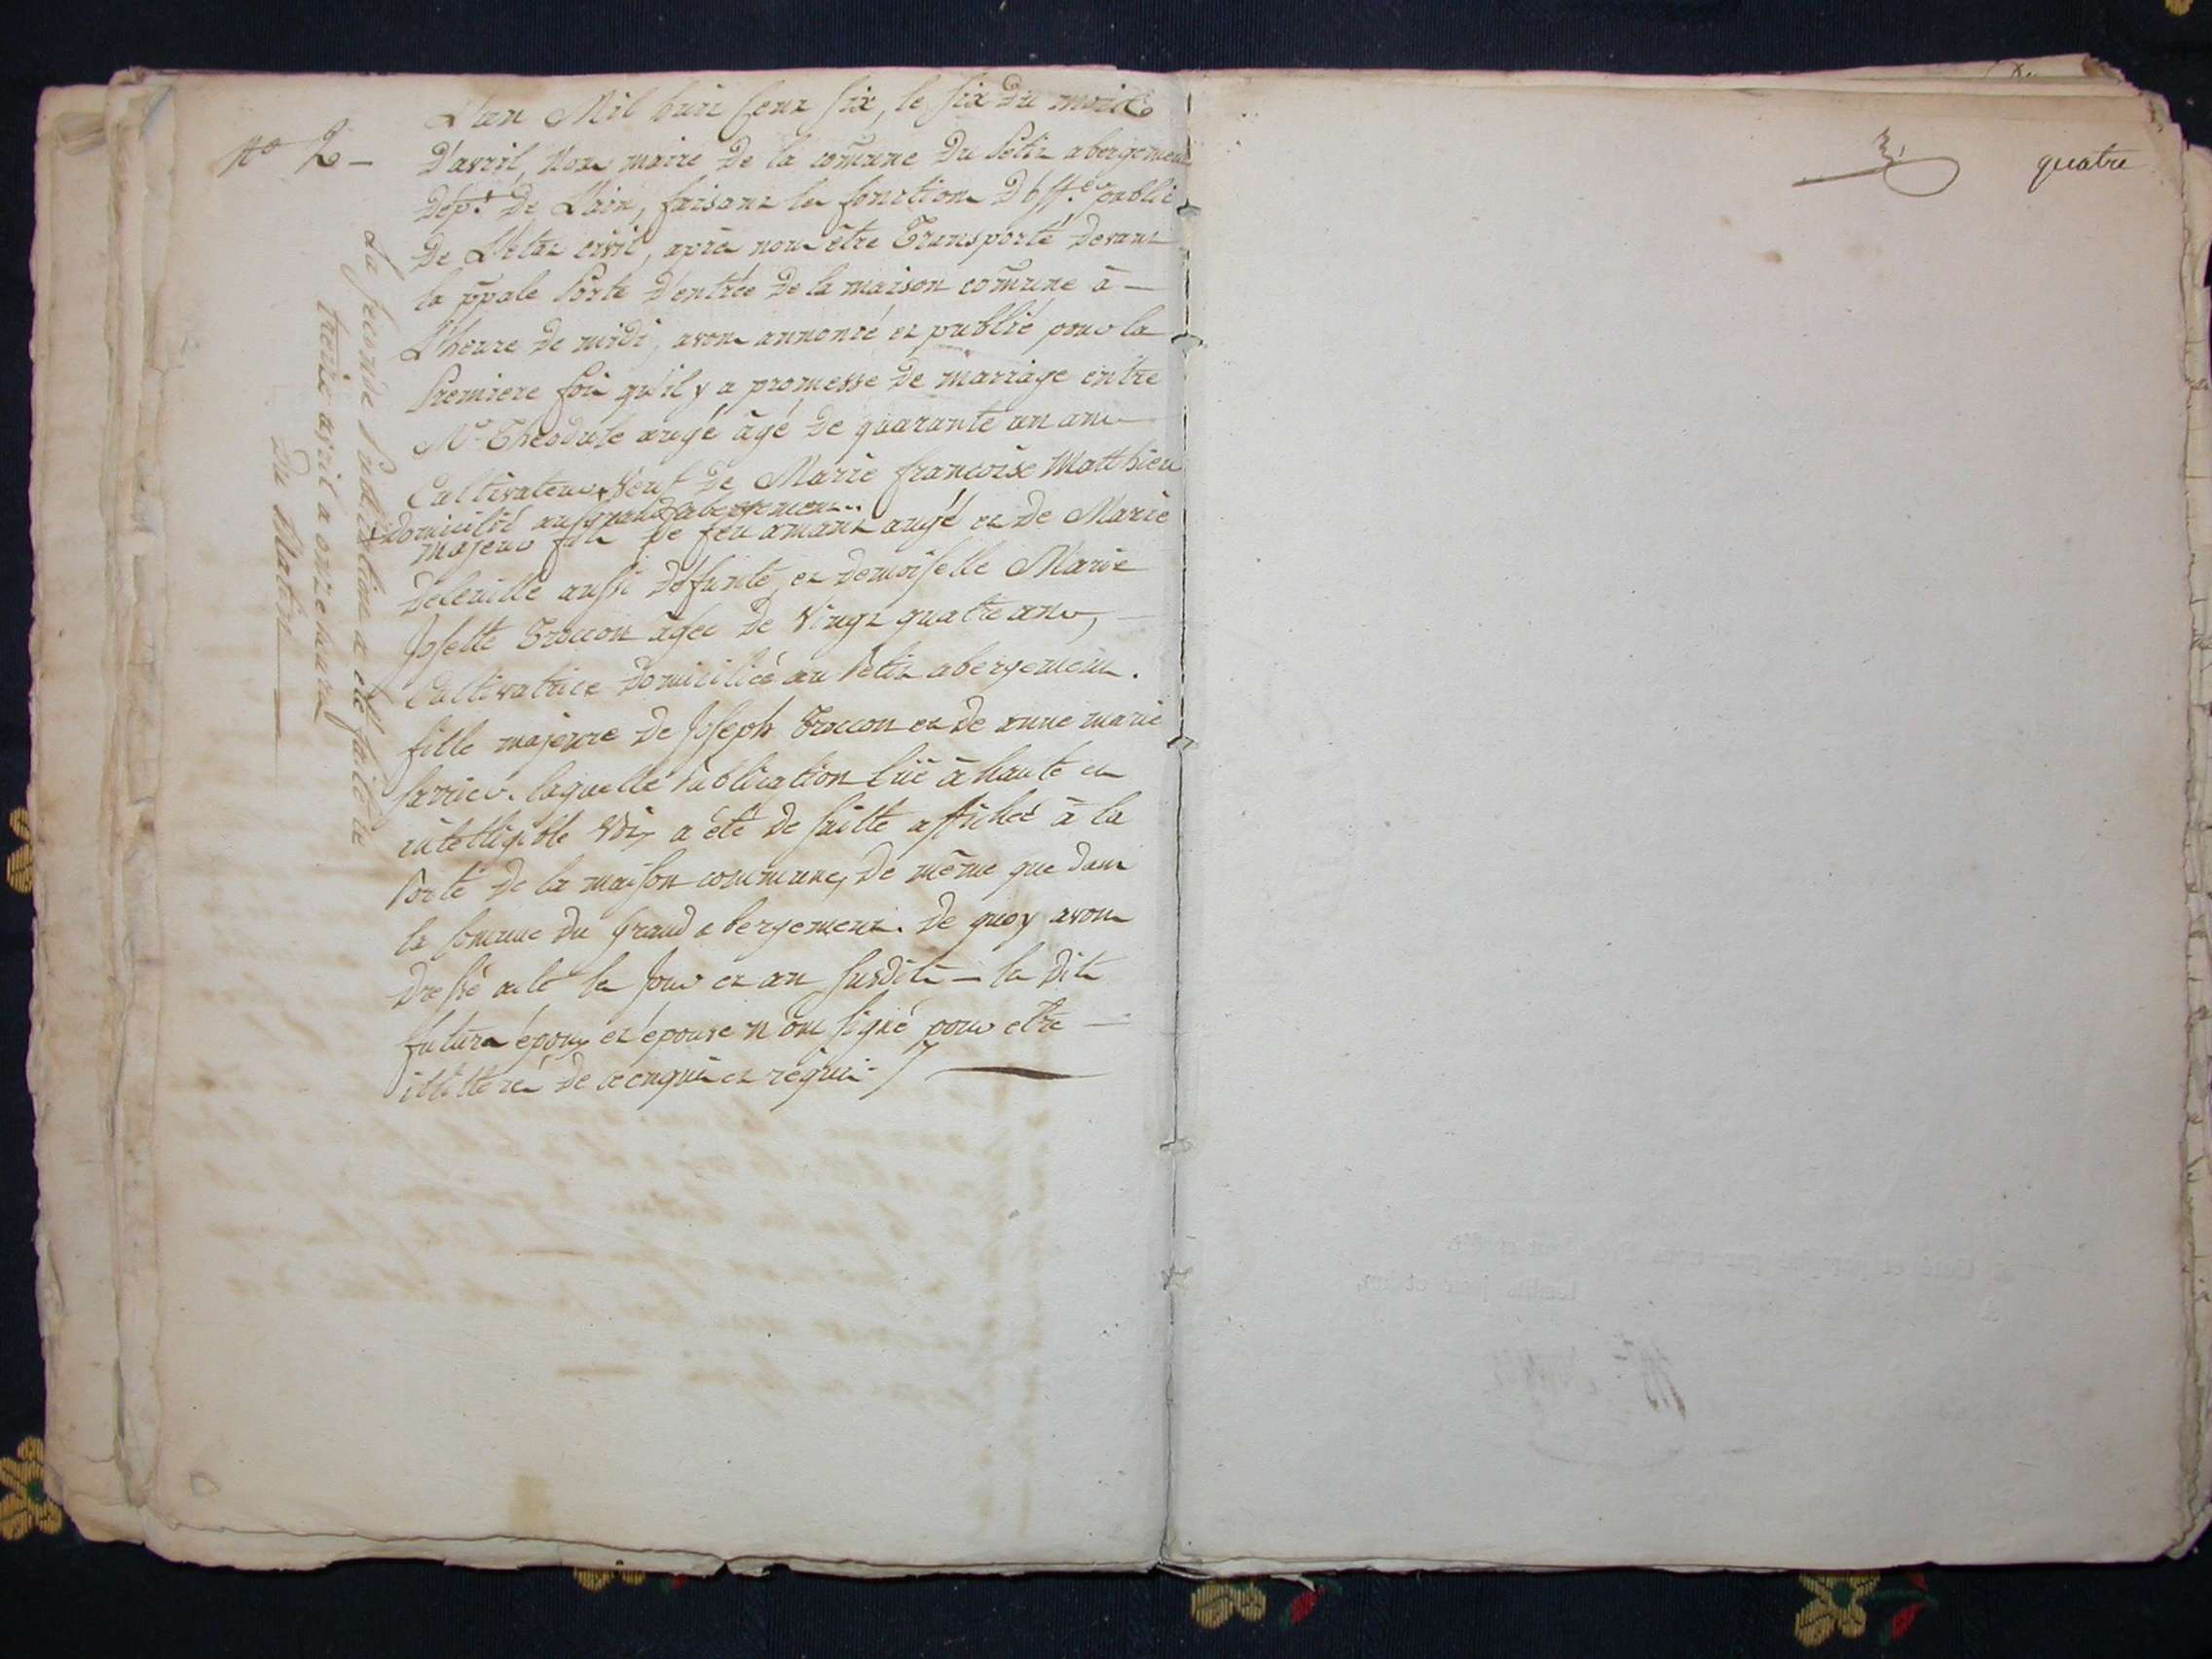 N° 2 –
L'an Mil huit Cent six, le six du mois
D'avril, Nous maire de la comune du Petit abergement
Dép.t de L'ain, faisant les fonctions D'off.er public
De L'état civil, après nous être Transporté devant
la ppale Porte D'entrée de la maison comune à —
L'heure de midi, avons annoncé et publié pour la
Premiere fois qu'il y a promesse de mariage entre
Mr Theodule augé âgé de quarante un ans
Cultivateur Veuf de Marie françoise Matthieu
domicilié au grand abergement..
majeur fils de feu amant augé et de Marie
aussi défunte, et demoiselle Marie
Josette Troccon âgée de Vingt quatre ans, —
Cultivatrice domiciliée au Petit abergement.
fille majeure de Joseph Troccon et de anne marie
laquelle Publication luë à haute et
intelligible Voix a été de suitte affichée à la
Porte de la maison commune, de même que dans
la Comune du Grand abergement. de quoy avons
Dressé acte les Jour et an susdits — les dits
futurs époux et épouse n'ont signé pour etre —
illitterés de ce enquis et requis /
La seconde Publication a été faite le
treize avril a onze heures
du Matin
quatre